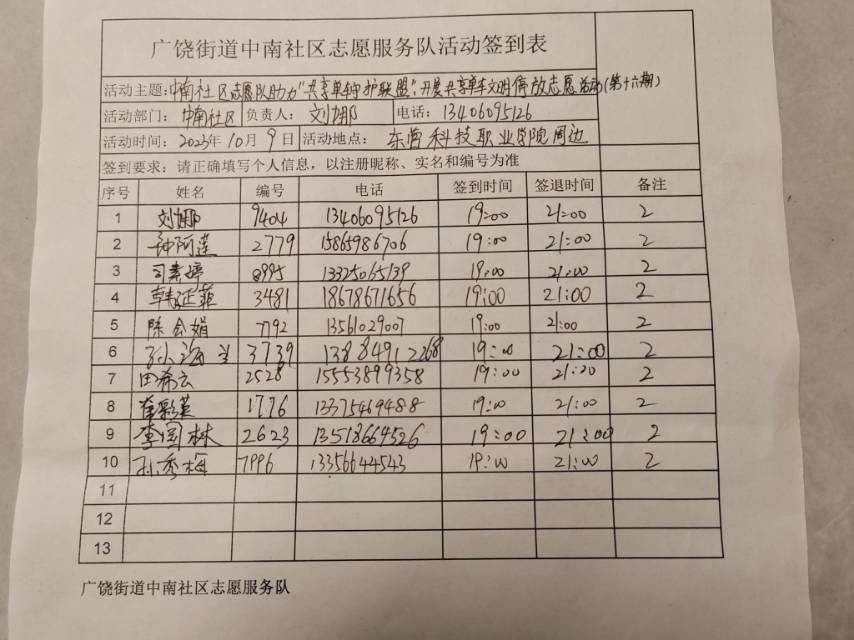 广饶街道中南社区志愿服务队活动签到表
活动主题：中南社区志愿队助力"共享单车守护联盟"，开展共享单车文明停放志愿活动（第十六期）
活动部门：中南社区 负责人：刘娜 电话：13406095126
活动时间：2023年10月9日 活动地点：东营科技职业学院周边
签到要求：请正确填写个人信息，以注册昵称、实名和编号为准
序号 姓名 编号 电话 签到时间 签退时间 备注
1 刘娜 9404 13406095126 19:00 21:00 2
2 钟阿莲 2779 15865986706 19:00 21:00 2
3 司素婷 8995 13325065139 19:00 21:00 2
4 韩延菲 3481 18678671656 19:00 21:00 2
5 陈会娟 7792 13561029007 19:00 21:00 2
6 孙海 3739 13884912268 19:00 21:00 2
7 田希云 2528 15553899358 19:00 21:00 2
8 崔彩英 1776 13375469488 19:00 21:00 2
9 李国林 2623 13518664526 19:00 21:00 2
10 孙秀梅 7996 13356644543 19:00 21:00 2
11
12
13
广饶街道中南社区志愿服务队